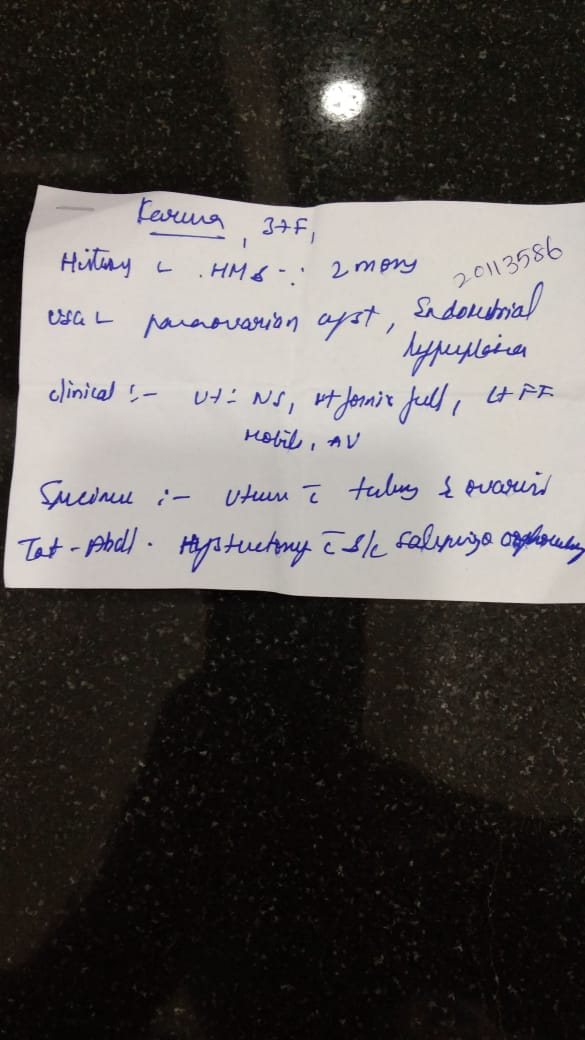 Karuna, 37F,
20113586
History :- HMB :- 2 mons
USG :- paraovarian cyst, Endometrial
hyperplasia
clinical :- Ut :- NS, rt fornix full, Lt FF
Mobile, AV
Specimen :- Uterus c̄ tubes & ovaries
Tot-Abdl. Hysterectomy c̄ B/L salpingo oophorectomy